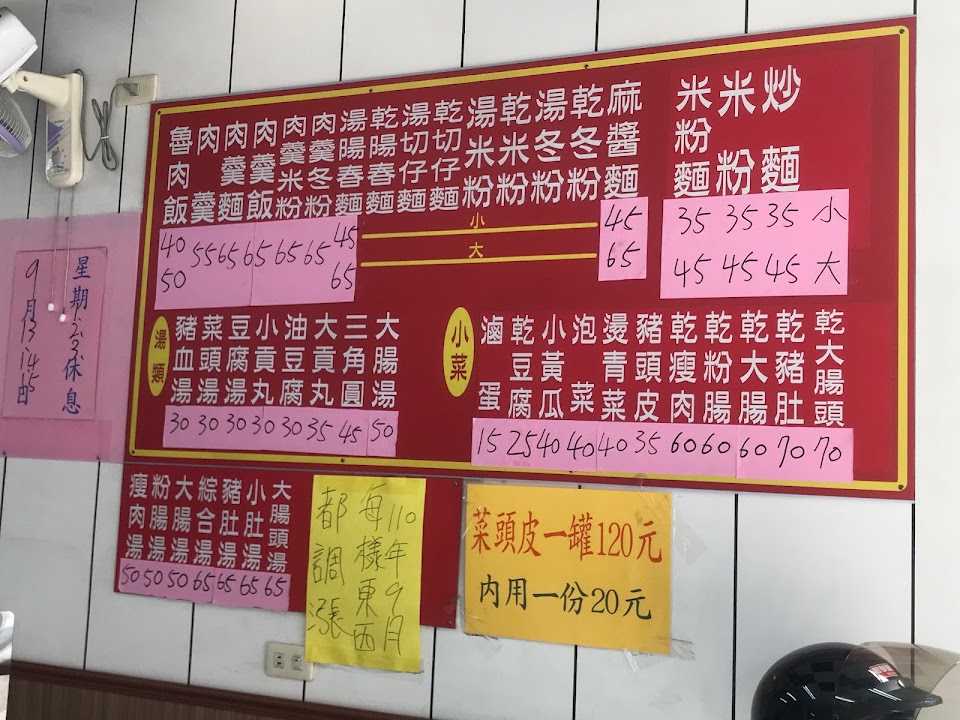 魯肉飯
肉羹
肉羹麵
肉羹飯
肉羹米粉
肉羹冬粉
湯陽春麵
乾陽春麵
湯切仔麵
乾切仔麵
湯米粉
乾米粉
湯冬粉
乾冬粉
麻醬麵
米粉麵
米粉
炒麵
40 55 65 65 65 65 45
50 65
小
大
45
65
35 35 35 小
45 45 45 大
湯類
豬血湯
菜頭湯
豆腐湯
小貢丸
油豆腐
大貢丸
三角圓
大腸湯
30 30 30 30 30 35 45 50
小菜
滷蛋
乾豆腐
小黃瓜
泡菜
燙青菜
豬頭皮
乾瘦肉
乾粉腸
乾大腸
乾豬肚
乾大腸頭
15 25 40 40 40 35 60 60 60 70 70
瘦肉湯
粉腸湯
大腸湯
綜合湯
豬肚湯
小肚湯
大腸頭湯
50 50 50 65 65 65 65
110年9月
每樣東西
都調漲
菜頭皮一罐120元
內用一份20元
星期休息
9月13 14 15日